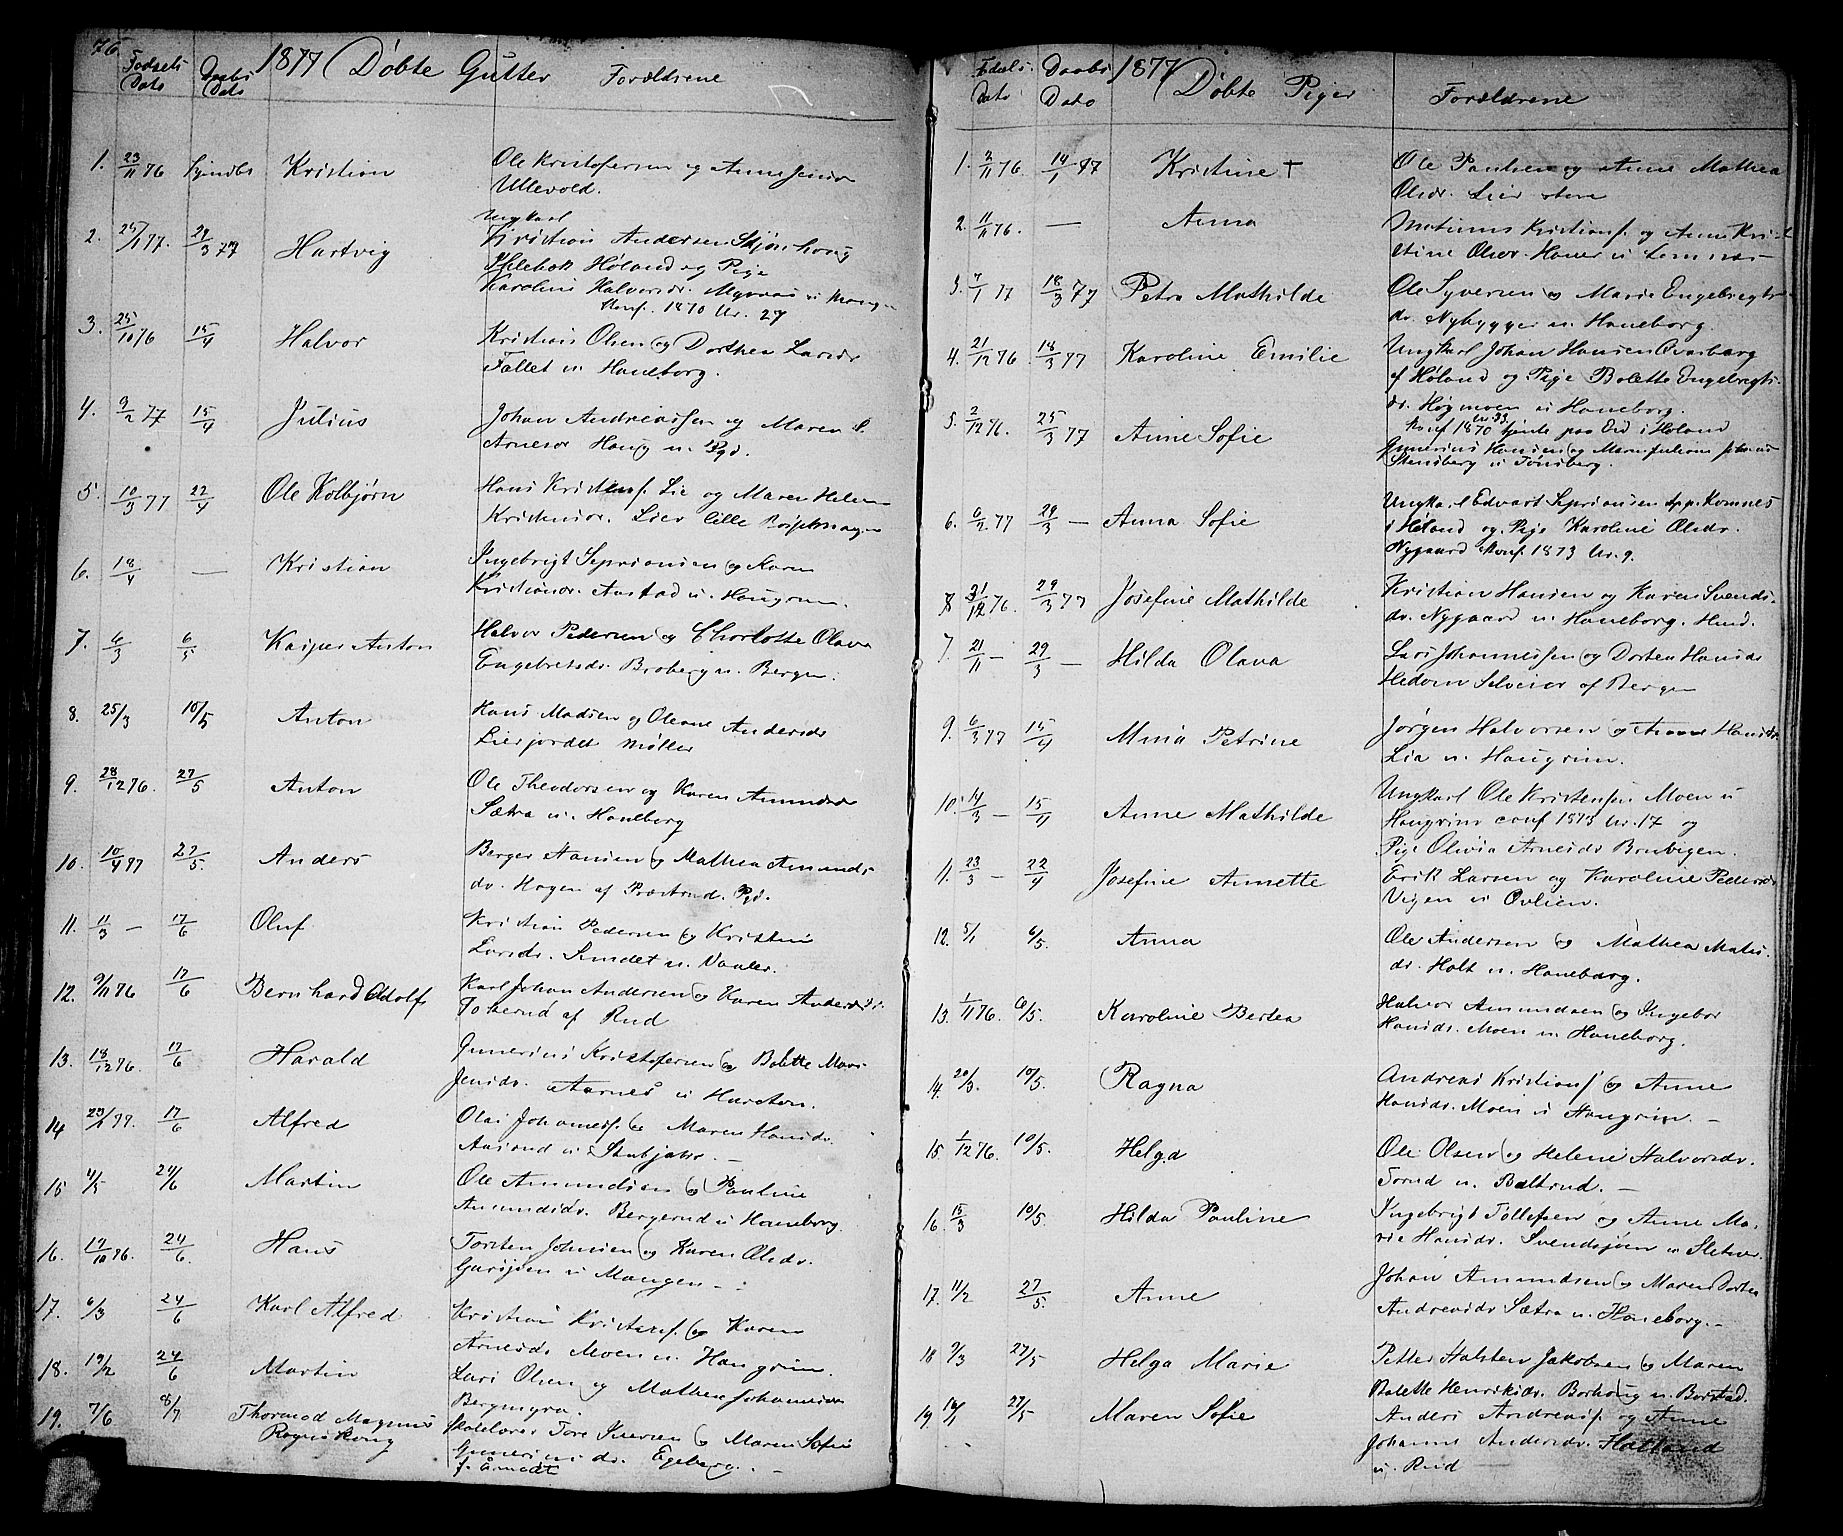 76.
1877 Døbte Gutter
Fødsels Dato
Daabs Dato
Forældrene
1. 23/11 76 Kristian
Ole Kristofersen og Anne Jens
Ullevold.
2. 25/1 77. 21/3 77 Hartvig
Ungkarl
Kristian Andersen
Høland og Pige
Karoline Halvorsdr.
Konf. 1870 Nr. 27
3. 25/10 76 15/4 Halvor
Kristian Olsen og Dorthea Larsdr
Fallet u. Haneborg.
4. 9/2 77 15/4 Julius
Johan Andreassen og Maren S.
Arnesdr Haug u. Rød.
5. 10/3 77 22/4 Ole Kolbjørn
Hans Kristens. Lie og Maren Helene
Kristensdr. Lier lille
6. 18/4 — Kristian
Ingebrigt Seprianssen og Karen
Kristiansdr. Aastad u. Haugrim.
7. 6/3 6/5 Kasper Anton
Halvor Pedersen og Charlotte Olava
Engebretsdr. Broberg u. Bergen.
8. 25/3 10/5 Anton
Hans Madsen og Oleane Andersdr
Lierfordet Møller
9. 28/12 76. 27/5 Anton
Ole Theodorsen og Karen Amundsdr
Sætra u. Haneborg
10. 10/4 77 27/5. Anders
Berger Hansen og Mathea Amunds
dr. Hagen af Præstrud. Rød.
11. 11/3 — 17/6 Oluf
Kristian Pedersen og Kristine
Larsdr. Sundet u. Vaaler.
12. 9/11 76 17/6 Bernhard Adolf
Karl Johan Andersen og Karen Andersdr.
Tokerud af Rud
13. 18/12 76. 17/6 Harald
Gunerius Kristofersen og Bolette Mari
Jensdr. Aarnes u Harston.
14 17/6 Alfred
Olai Johannesf. og Maren Hansdr.
15 4/5 24/6 Martin
Ole Amundsen og Pauline
Amundsdr. Bergerud u Haneborg.
16. 17/10 76. 24/6. Hans
Torsten Johnsen og Karen Olsdr.
Garsjøen u Mangen —
17. 6/3 24/6 Karl Alfred
Kristian Kristensf. og Karen
Arnesdr Moen u. Haugrim.
18. 19/2 24/6 Martin
Lars Olsen og Mathea Johannesdr
Bergmyra.
19. 7/6 8/7 Thormod Magnus
Skolelærer Tore Iversen og Maren Sofie
Guneriusdr. Egeberg. —
f. Aamodt
Fødsels Dato
Daabs Dato
1877 Døbte Piger
Forældrene
1. 2/11 76. 14/1 77 Kristine †
Ole Paulsen og Anne Mathea
Olsdr. Lier store
2. 11/11 76. — Anna
Matinus Kristiansf. og Anne Krist
tine Olsdr. Haner u Lemnæs
3. 7/1 77 18/3 77 Petra Mathilde
Ole Syversen og Marie Engebregts
dr. Nybygget u. Haneborg.
4. 21/12 76. 18/3 77 Karoline Emilie
Ungkarl Johan Hansen
af Høland og Pige Bolette Engebregts
dr. Høgmoen u Haneborg.
Konf 1870 Nr 33. tjente paa Eid i Høland
5. 2/12 76. 25/3 77 Anne Sofie
Gunerius Hansen og Maren Juliane Johansdr
Stensberg u Tønsberg.
6. 6/2 77 29/3 — Anna Sofie
Ungkarl Edvart Seprianssen Opp. Komnes
i Høland og Pige Karoline Olsdr.
Nygaard Konf. 1873 Nr. 9.
8 31/12 76. 29/3 77 Josefine Mathilde
Kristian Hansen og Karen Svends
dr. Nygaard u. Haneborg. Husd.
7. 21/11 — 29/3 — Hilda Olava
Lars Johannessen og Dortea Hansdr
Hedven Selveier af Bergen
9. 6/3 77 15/4 Mina Petrine
Jørgen Halvorsen og Anne Hansdr
Lia u. Haugrim.
10. 14/3 — 15/4 Anne Mathilde
Ungkarl Ole Kristensen Moen u
Haugrim conf 1873 Nr. 17 og
Pige Olivia Arnesdr Bruvigen.
11. 23/3 — 22/4 Josefine Annette
Erik Larsen og Karoline Pedersdr
Vigen u Ovlien.
12. 5/1 6/5. Anna
Ole Andersen og Mathea Mats
dr. Holt u. Haneborg.
13. 1/11 76. 6/5. Karoline Bertea
Halvor Amundsen og Ingebor
Hansdr. Moen u. Haneborg.
14. 20/3. 10/5. Ragna
Andreas Kristiansf og Anne
Hansdr. Moen u Haugrim. —
15 1/12 76. 10/5. Helga
Ole Olsen og Helene Halvorsdr.
Torud u. Bøltrud. —
16. 15/3 10/5. Hilda Pauline
Ingebrigt Tollefsen og Anne Ma-
rie Hansdr. Svendsjøen u Sletner.
17. 11/2 27/5. Anne
Johan Amundsen og Maren Dortea
Andreasdr Sætra u. Haneborg. —
18 9/3 27/5 Helga Marie
Petter Halsten Jakobsen og Maren
Bolette Henriksdr. Borhaug u. Borstad.
19 27/5 Maren Sofie
Anders Andreasf. og Anne
Johanne Andersdr. Flatland
u. Rud